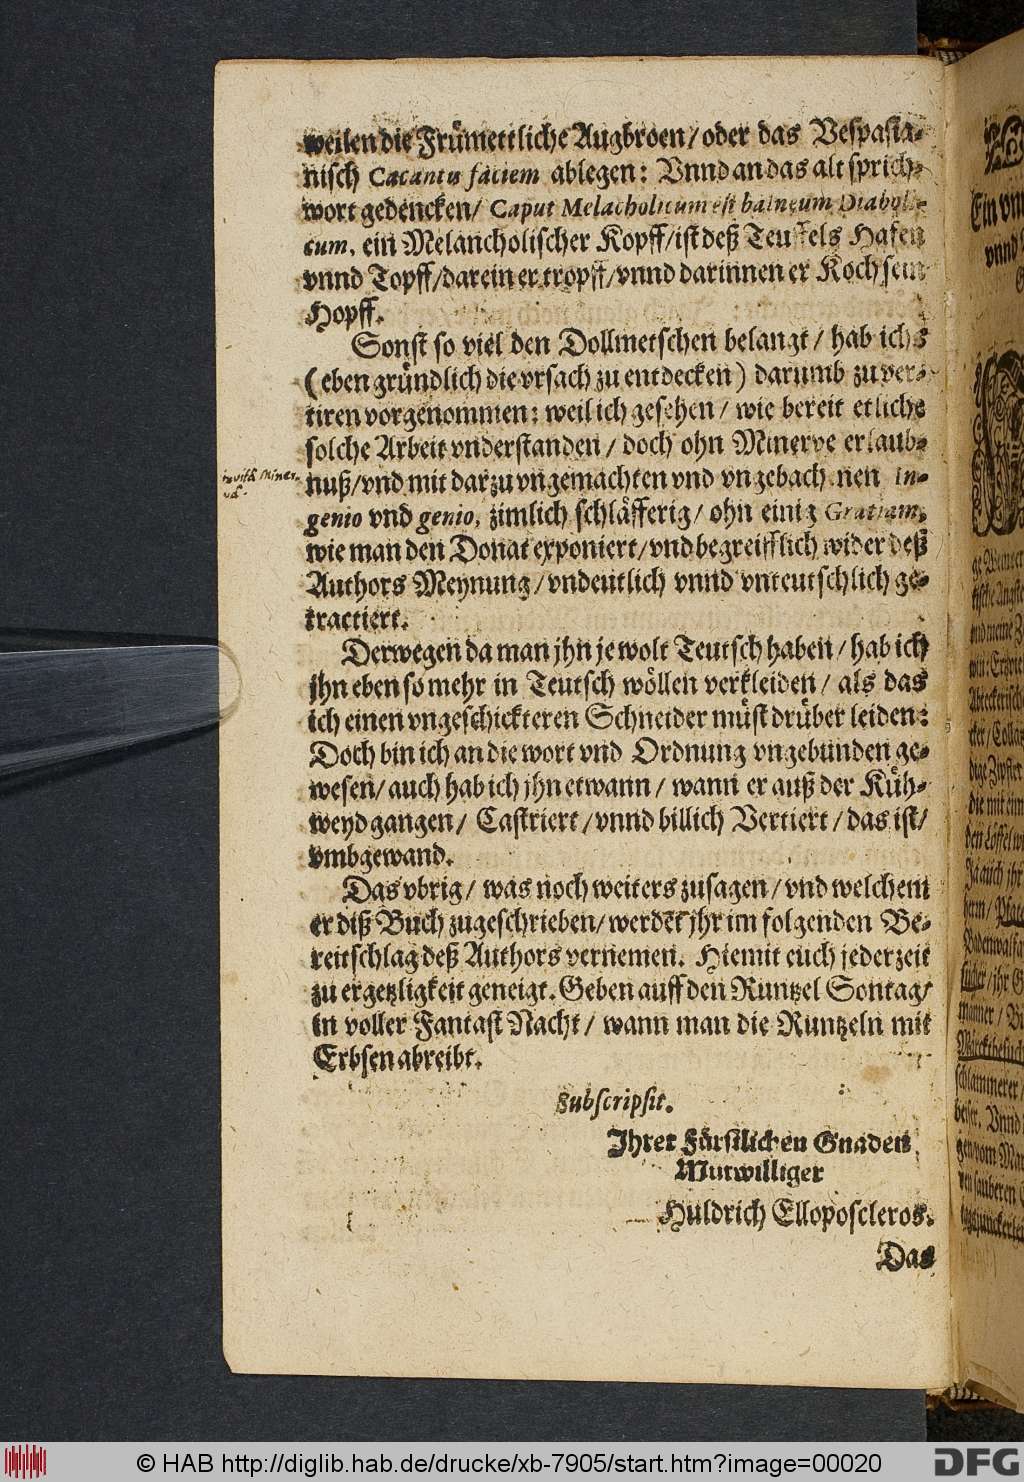 weilen die Frümettliche Augbroen/ oder das Vespasia-
nisch Cacantis faciem ablegen: Vnnd an das alt sprich-
wort gedencken/ Caput Melācholicum est balneum Diaboli-
cum, ein Melancholischer Kopff/ ist deß Teuffels Hafen
vnnd Topff/ darein er tropfft/ vnnd darinnen er Koch sein
Hopff.
Sonst so viel den Dollmetschen belangt/ hab ichs
(eben gründlich die vrsach zu entdecken) darumb zu ver-
tiren vorgenommen: weil ich gesehen/ wie bereit etliche
solche Arbeit vnderstanden/ doch ohn Minerve erlaub-
nuß/ vnd mit darzu vngemachten vnd vngebachenen In-
genio vnd genio, zimlich schläfferig/ ohn einig Gratiam,
wie man den Donat exponiert/ vnd begreifflich wider deß
Authors Meynung/ vndeutlich vnnd vnteutschlich ge-
tractiert.
Derwegen da man jhn je wolt Teutsch haben/ hab ich
jhn eben so mehr in Teutsch wöllen verkleiden/ als das
ich einen vngeschickteren Schneider müst drüber leiden:
Doch bin ich an die wort vnd Ordnung vngebunden ge-
wesen/ auch hab ich jhn etwann/ wann er auß der Küh-
weyd gangen/ Castriert/ vnnd billich Vertiert/ das ist/
vmbgewand.
Das vbrig/ was noch weiters zusagen/ vnd welchem
er diß Buch zugeschrieben/ werdēt jhr im folgenden Be-
reitschlag deß Authors vernemen. Hiemit euch jederzeit
zu ergetzligkeit geneigt. Geben auff den Runtzel Sontag/
in voller Fantast Nacht/ wann man die Runtzeln mit
Erbsen abreibt.
Subscripsit.
Jhrer Fürstlichen Gnaden
Mutwilliger
Huldrich Elloposcleros.
Das
© HAB http://diglib.hab.de/drucke/xb-7905/start.htm?image=00020
DFG